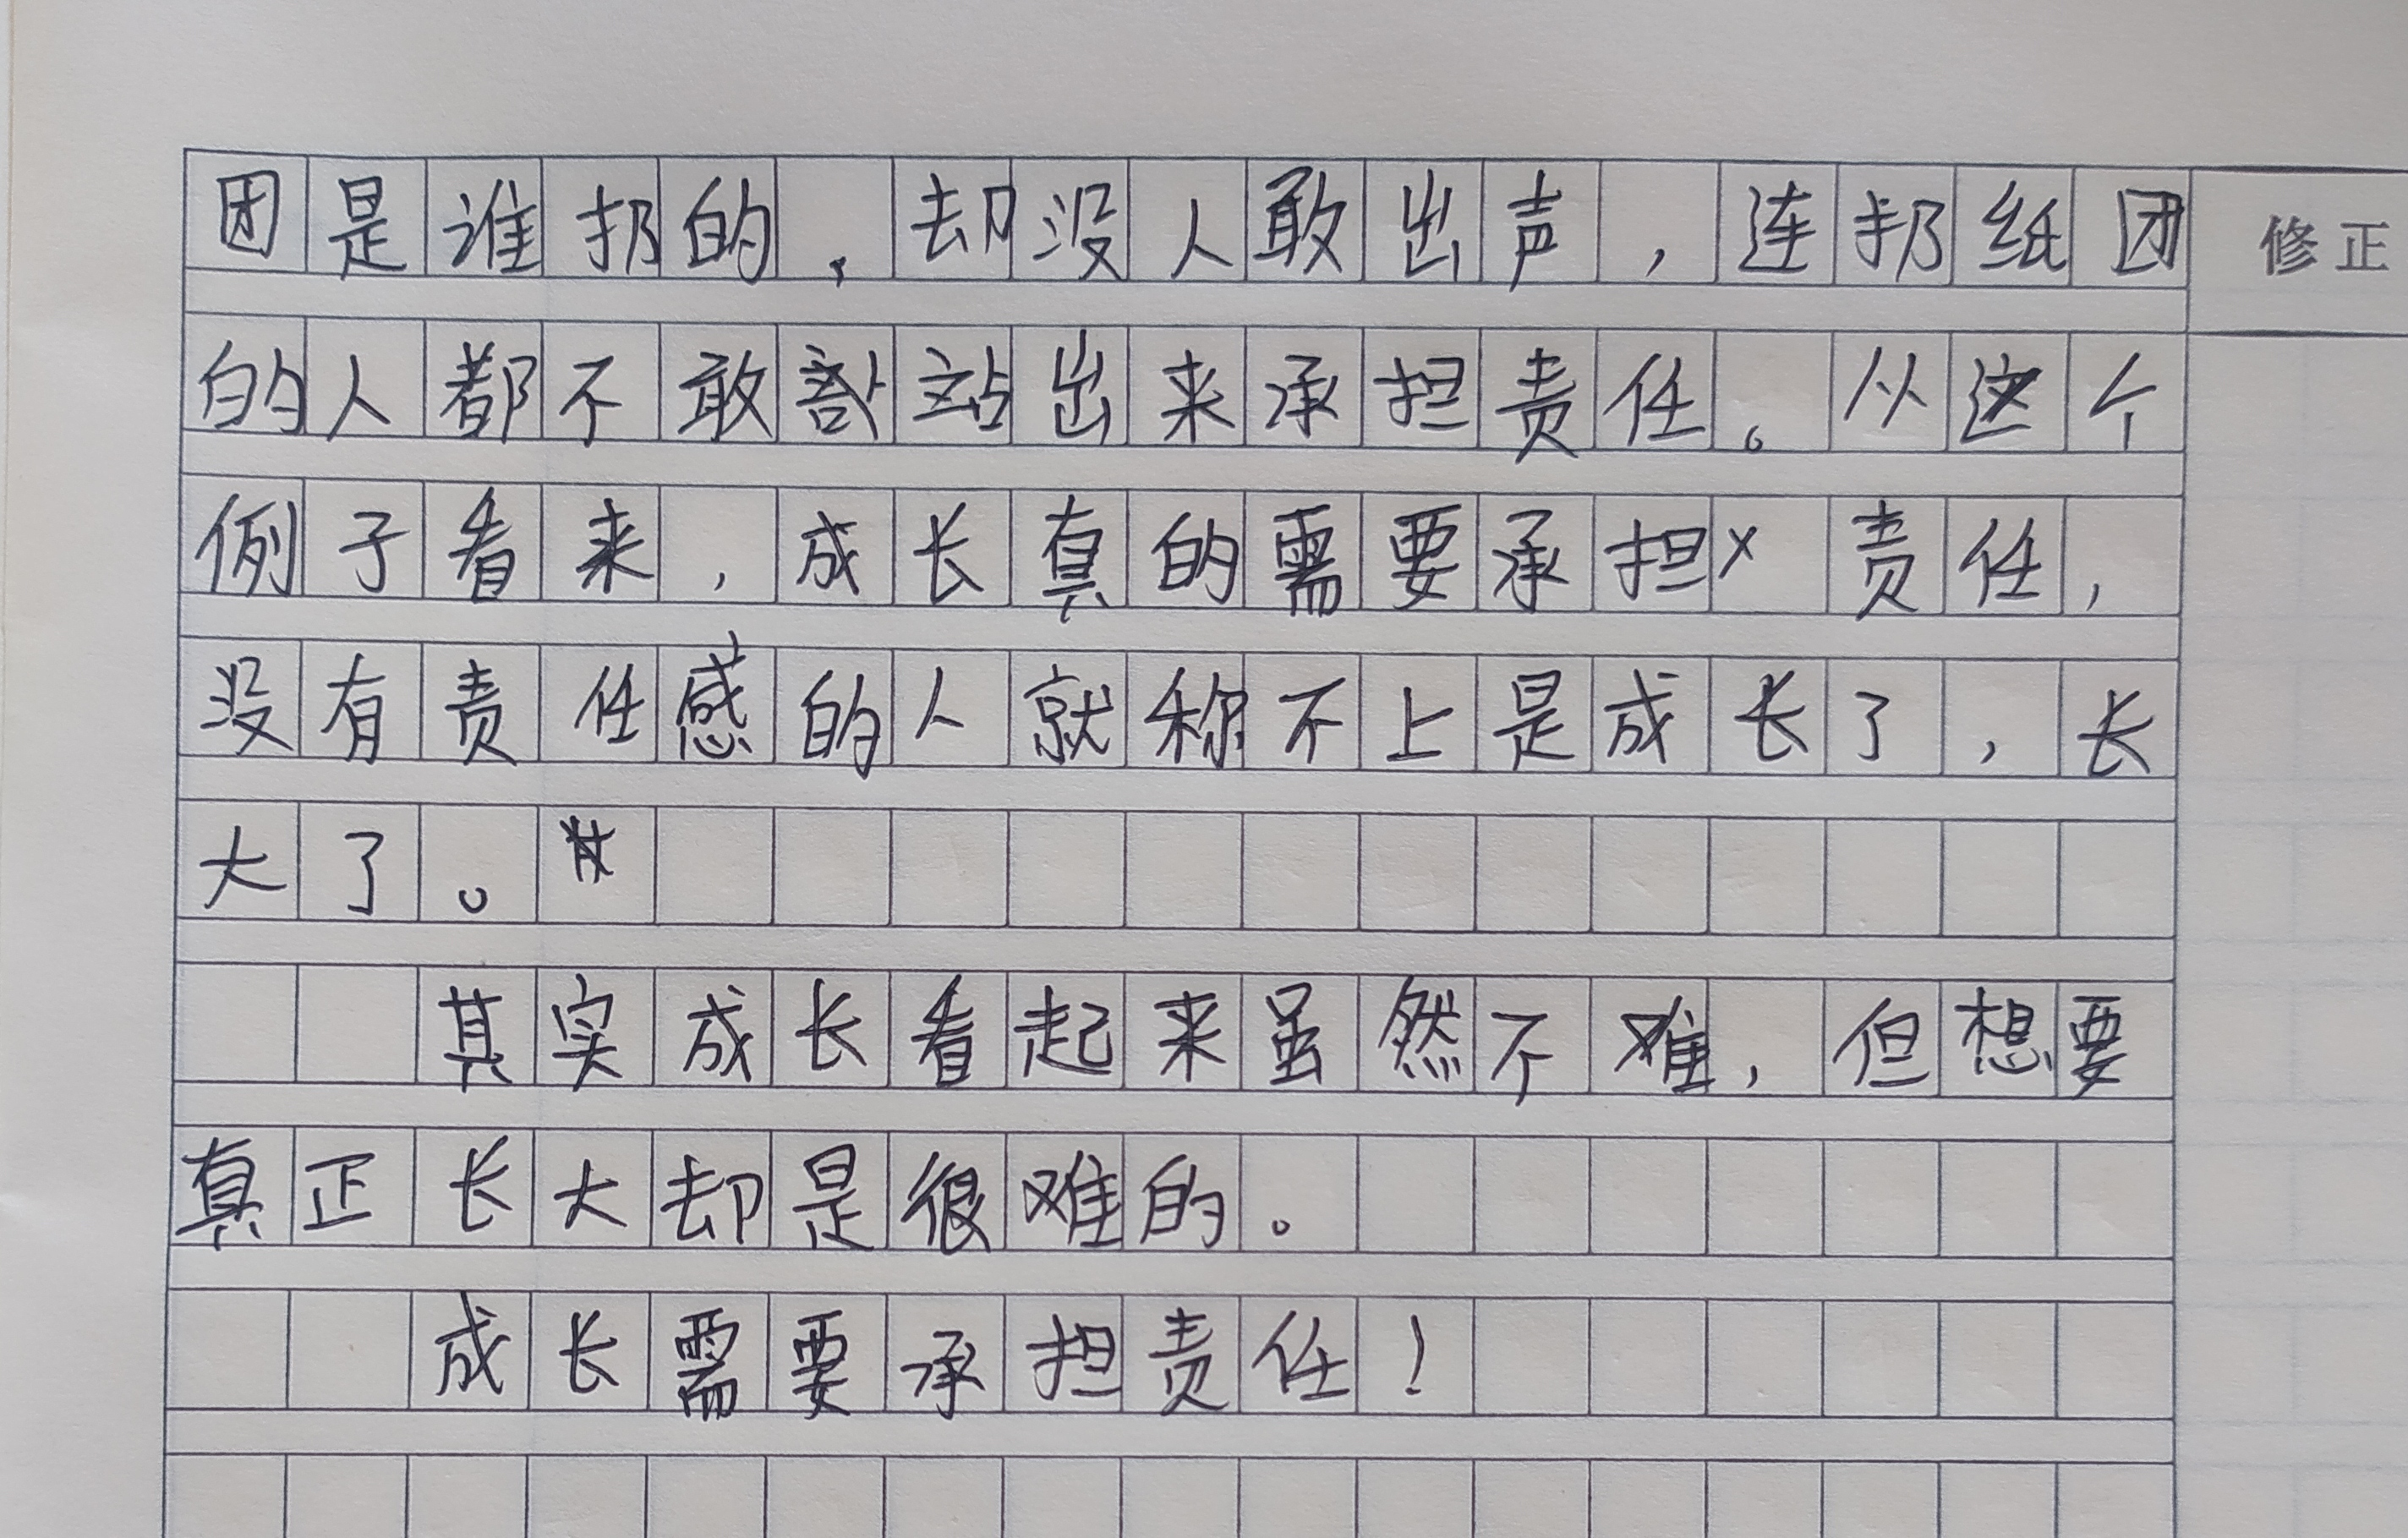 团是谁扔的，却没人敢出声，连扔纸团
修正
的人都不敢站出来承担责任。从这个
例子看来，成长真的需要承担责任，
没有责任感的人就称不上是成长了，长
大了。
其实成长看起来虽然不难，但想要
真正长大却是很难的。
成长需要承担责任！